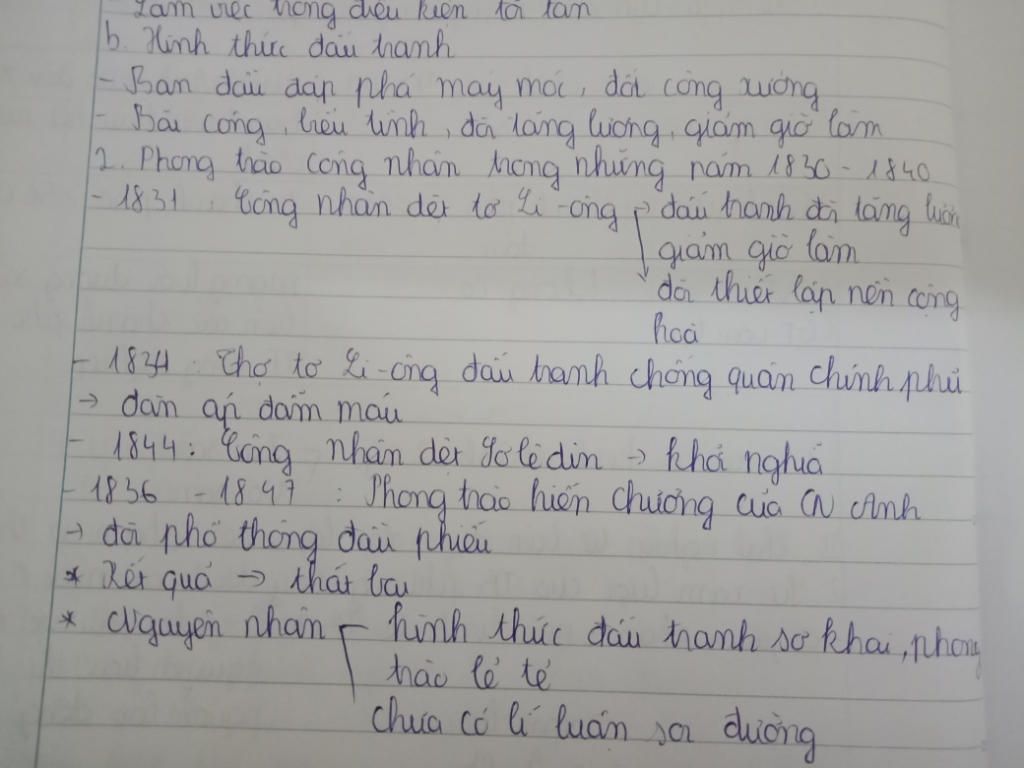 - Làm việc trong điều kiện tồi tàn
b. Hình thức đấu tranh
- Ban đầu đập phá máy móc, đốt công xưởng
- Bãi công, biểu tình, đòi tăng lương, giảm giờ làm
2. Phong trào công nhân trong những năm 1830 - 1840
- 1831 : Công nhân dệt tơ Li-ông → đấu tranh đòi tăng lươn
giảm giờ làm
đòi thiết lập nền cộng
hoà
- 1834 : Thợ tơ Li-ông đấu tranh chống quân chính phủ
→ đàn áp đẫm máu
- 1844 : Công nhân dệt Sơlêdin → khởi nghĩa
- 1836 - 1847 : Phong trào hiến chương của CN Anh
→ đòi phổ thông đầu phiếu
* Kết quả → thất bại
* Nguyên nhân hình thức đấu tranh sơ khai, phong
trào lẻ tẻ
chưa có lí luận soi đường